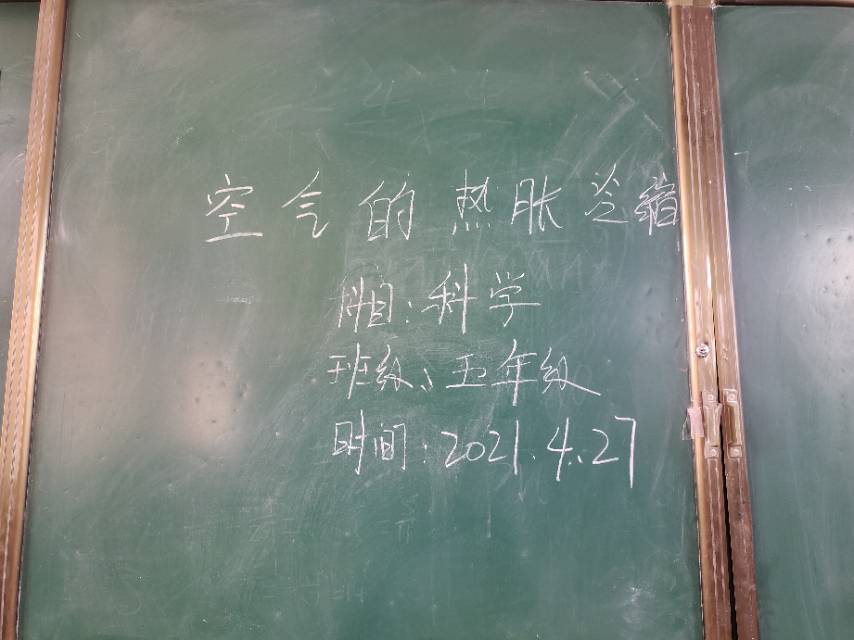 空气的热胀冷缩
科目:科学
班级:五年级
时间:2021.4.27